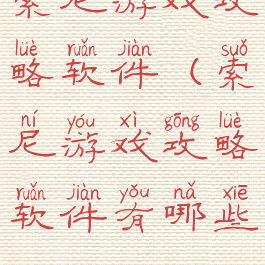 索尼游戏攻
lüè ruǎn jiàn suǒ
略软件（索
ní yóu xì gōng lüè
尼游戏攻略
ruǎn jiàn yǒu nǎ xiē
软件有哪些